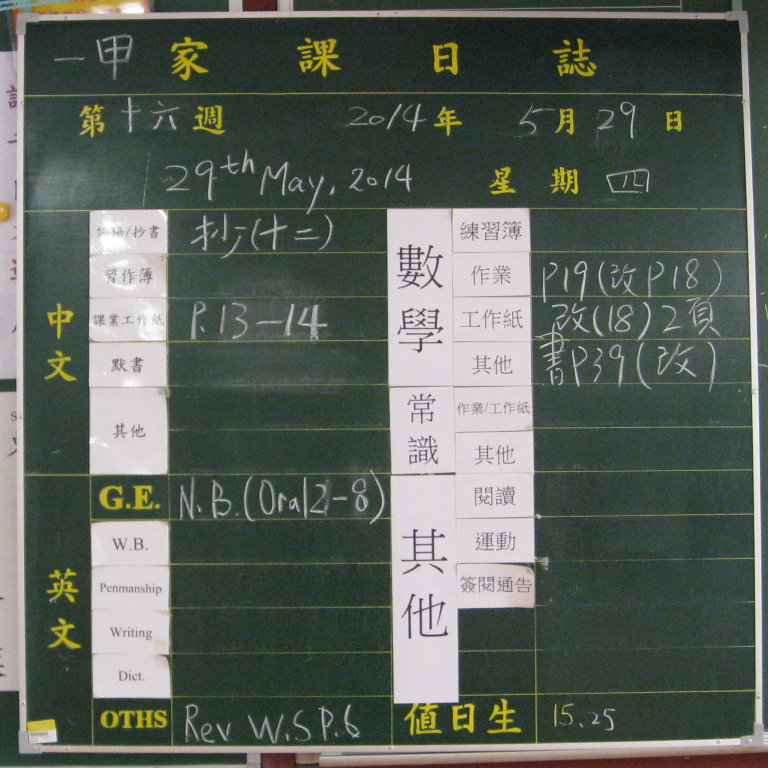 一甲 家課日誌
第十六週 2014年 5月29日
29th May, 2014 星期四
中文
詞語/抄書 抄(十二)
習作簿
課業工作紙 P.13-14
默書
其他
英文
G.E. N.B.(Oral2-8)
W.B.
Penmanship
Writing
Dict.
OTHS Rev W.S P.6
數學
練習簿
作業 P19(改P18)
工作紙 改(18)2頁
其他 書P39(改)
常識
作業/工作紙
其他
其他
閱讀
運動
簽閱通告
值日生 15.25